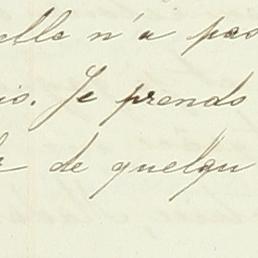 elle n'a pas
is. Je prends
de quelqu